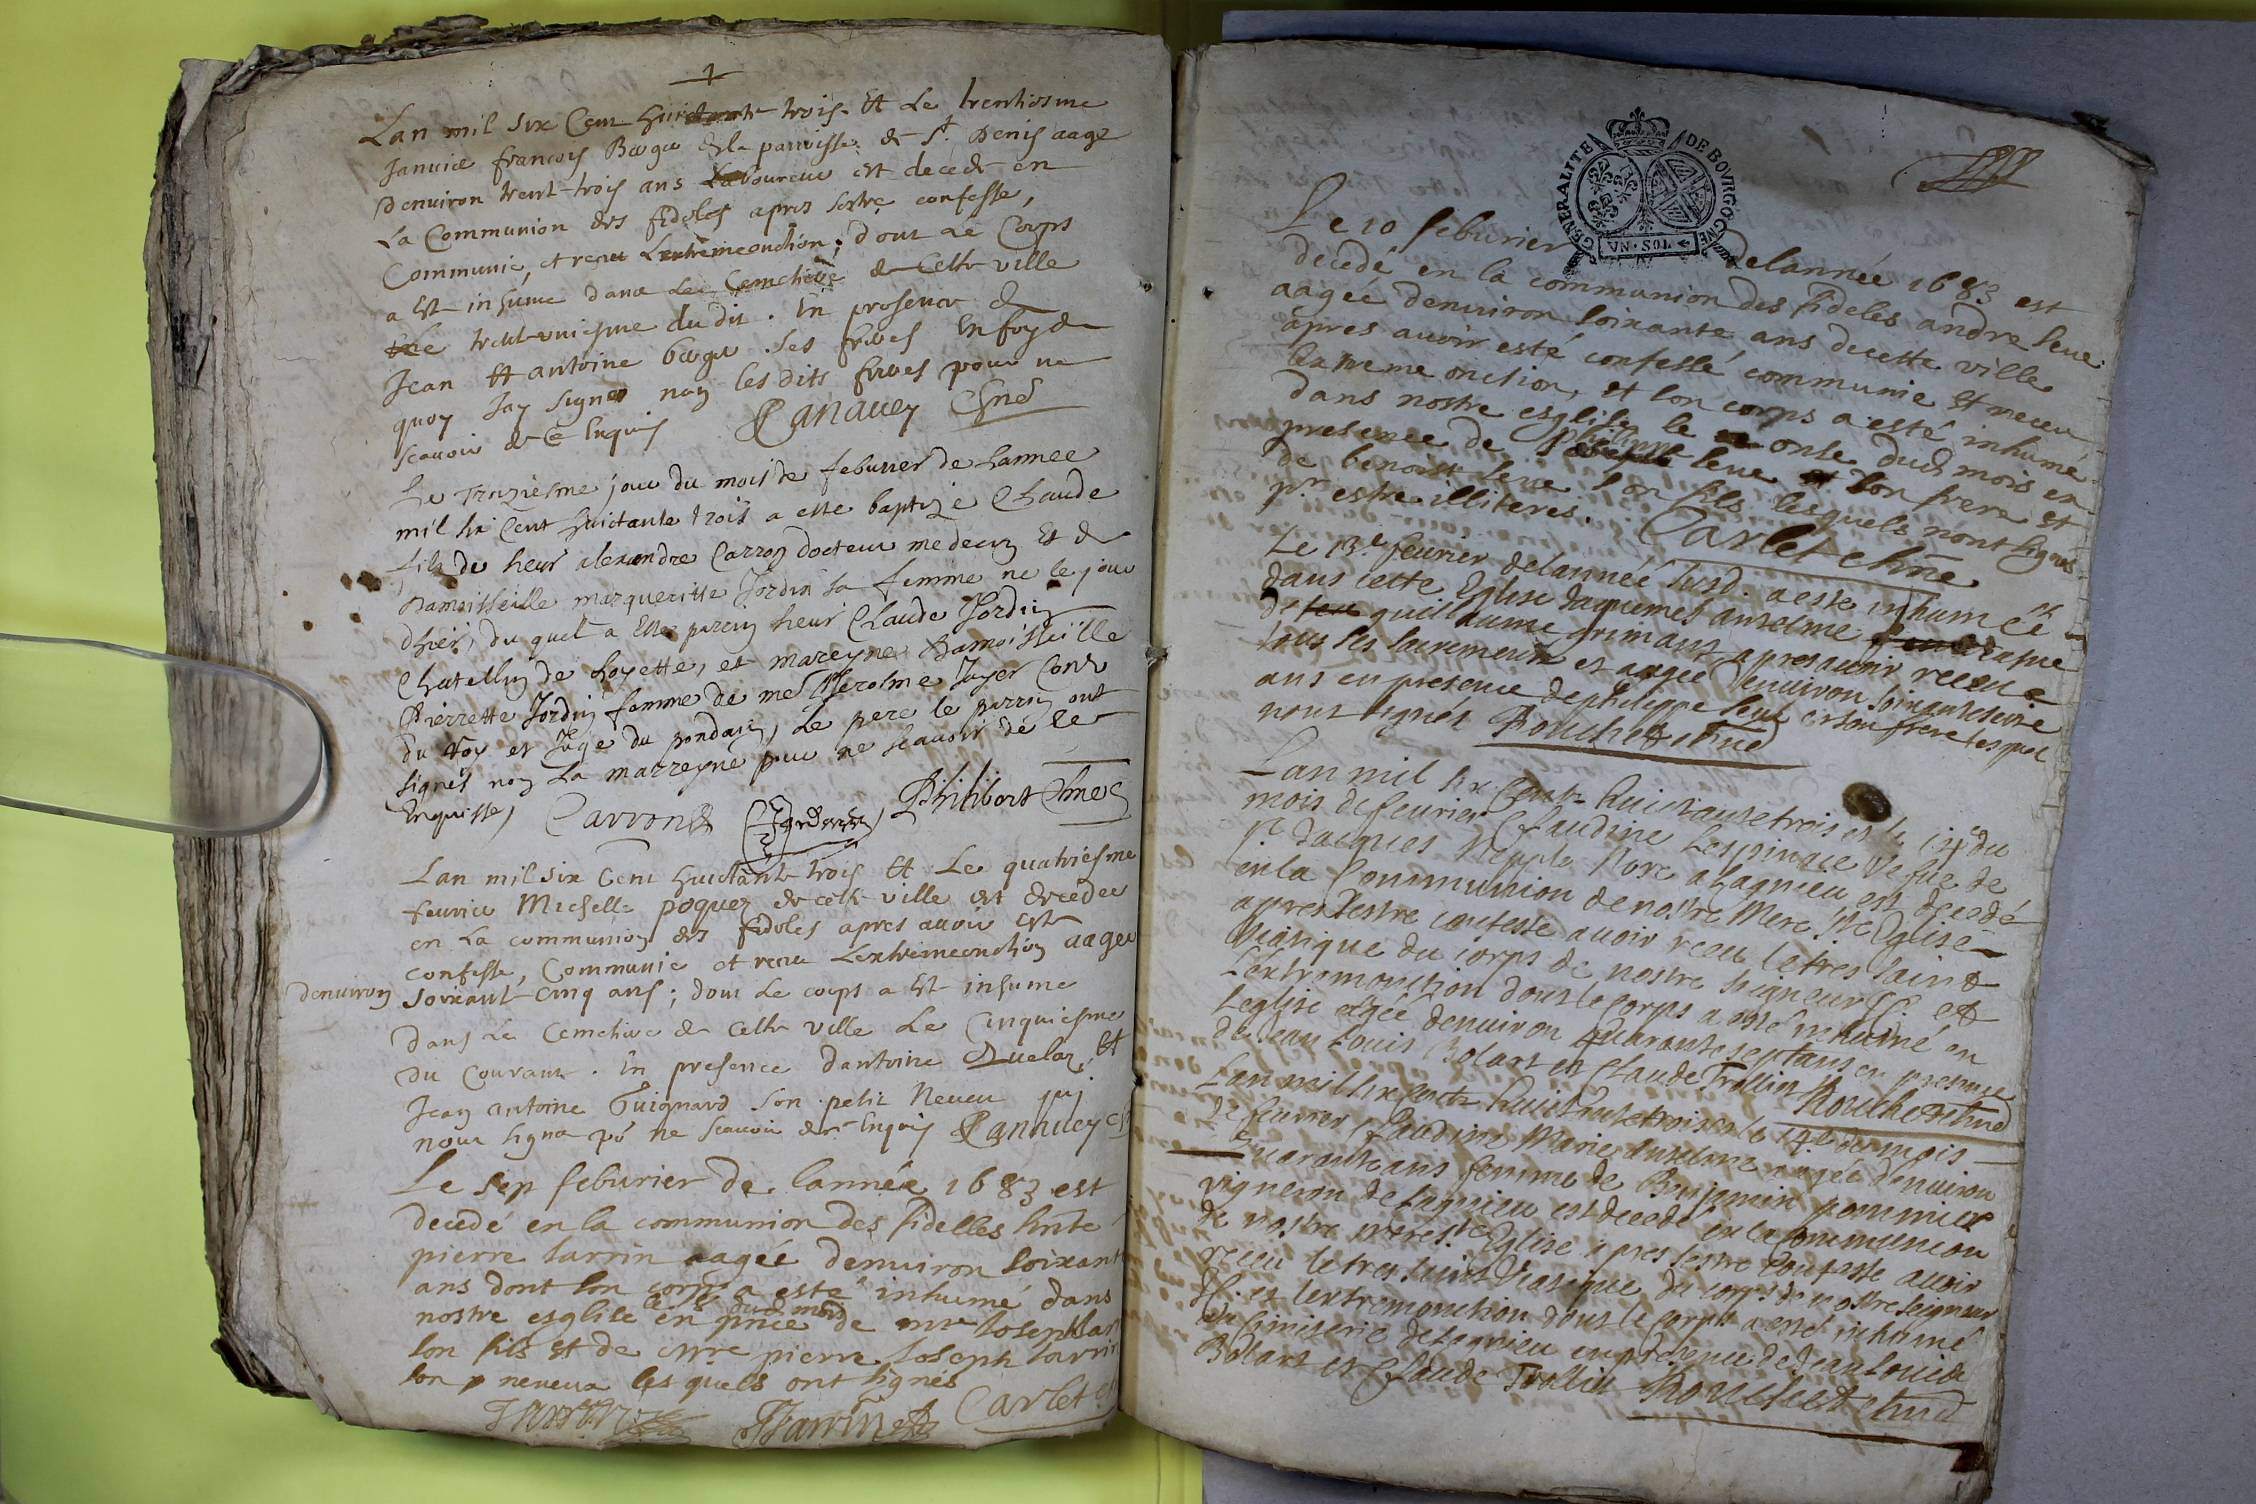 Lan mil six Cent huictante trois. Et Le trentiesme
Janvier francois de la parroisse de St. Denis aage
denviron trent trois ans Laboureur est decedé en
La Communion des fideles apres sestre confesse,
Communié, et receu Lextremeonction; dont Le Corps
a Esté inhumé dans Le Cemetiere de Cette ville
Le trent-uniesme du dit. En presence de
Jean Et antoine ses freres En foy de
quoy Jay signé non lesdits freres pour ne
scavoir de ce Enquis Canauey
Le jour du mois de feburier de Lannee
mil six Cent huictante trois a este baptizé Claude
fils de sieur alexandre Carron docteur medecin Et de
Damoisselle marguerite Jordin sa femme né le jour
dhier, du quel a Esté parrin sieur Claude Jordin
Chatellin de Loyette, et mareyne Damoisseille
Pierrette Jordin femme de me Jerosme
du Roy et Juge du pondain, Le pere le parrin ont
signés non La marreyne pour ne scauoir de ce
Enquisse, Carron Philibert
Lan mil six Cent huictante trois Et Le quatriesme
feurier Michelle poquez de cette ville est decedee
en La communion des fideles apres auoir Esté
confessé, Communie et receu Lextremeonction aagee
denuiron soixante cinq ans; dont Le corps a Esté inhume
dans Le Cemetiere de Cette ville Le Cinquiesme
du Courant. En presence dantoine Et
Jean antoine Guignard son petit Neueu qui
nont signé pr ne scauoir de ce Enquis Canauey
Le sep feburier de lannée 1683 est
decedé en la communion des fidelles
pierre sarrin aagée denuiron soixante
ans dont son corps a esté inhumé dans
nostre esglise le 8 dud mois en pnce de mre Joseph sar
son fils Et de pierre Joseph sarrin
son neueux les quels ont signés
Sarrin Carlet
GENERALITE DE BOURGOGNE
VN·SOL
Le 10 feburier delannée 1683 est
decedé en la communion des fideles andre seue
aagée denuiron soixante ans decette ville
apres auoir esté confessé communié et receu
Lextreme onction, et son corps a esté inhumé
dans nostre esglise le onse dud mois en
presence de philippe seue son frere et
de benoist seue son fils lesquels nont signés
pr estre illiteres. Carlet
Le 13e feurier delannéé susd. a este inhuméé
dans cette Eglise anselme
de guillaume grimaut apres auoir receu
tous les sacrements et aagee denuiron soixante
ans en presence de philippe et son frere lesquel
nont signés Rouchet
Lan mil six Cents huictante trois et le du
mois de feurier Claudine Lespinace vefue de
sr Jacques Nepple Nore a Lagnieu est decedé
en la Communion de nostre Mere Ste Eglise
apres sestre confessé auoir receu le tres saint
viatique du corps de nostre seigneur J.C. et
Lextremonction dont le corps a esté inhumé en
Leglise agée denuiron quarante sept ans en presence
de Jean Louis Bolart et Claude Trollin Rouchet
Lan mil six cents huictante trois et le 14e du mois
de feurier Claudine Marie Anselme agée denuiron
quarante ans femme de Benjamin pommier
vigneron de Lagnieu est decede en la Communion
de nostre mere ste Eglise apres sestre Confessé auoir
receu le tres saint viatique du corps de nostre seigneur
J.C. et lextremonction dont le corps a esté inhumé
au Cimitiere de Lagnieu en presence de Jean Louis
Bolart et Claude Trollin Rouchet